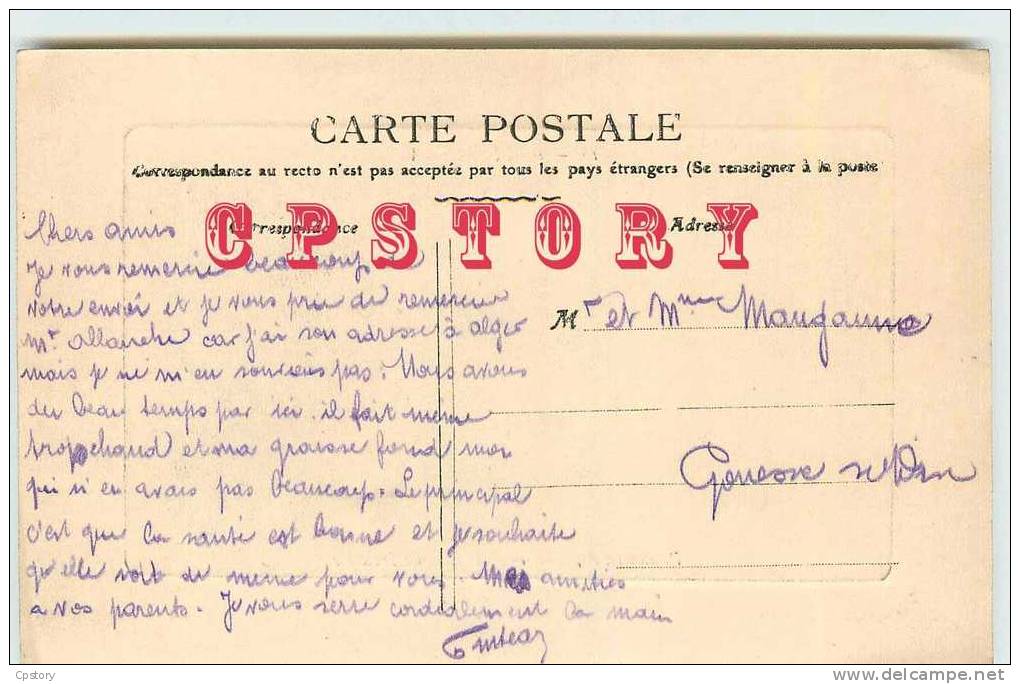 CARTE POSTALE
Correspondance au recto n'est pas acceptée par tous les pays étrangers (Se renseigner à la poste
CPSTORY
Correspondance
Adresse
Chers amis
Je vous remercie beaucoup de
votre envoi et je vous prie de remercier
Mr allanche car j'ai son adresse à alger
mais je ne m'en souviens pas. Nous avons
du beau temps par ici. il fait meme
trop chaud et ma graisse fond moi
qui n'en avais pas beaucoup. Le principal
c'est que la santé est bonne et je souhaite
qu'elle soit de même pour vous. Mes amitiés
a vos parents. Je vous serre cordialement la main
Mr et Mme
Gonesse
Cpstory
www.delcampe.net